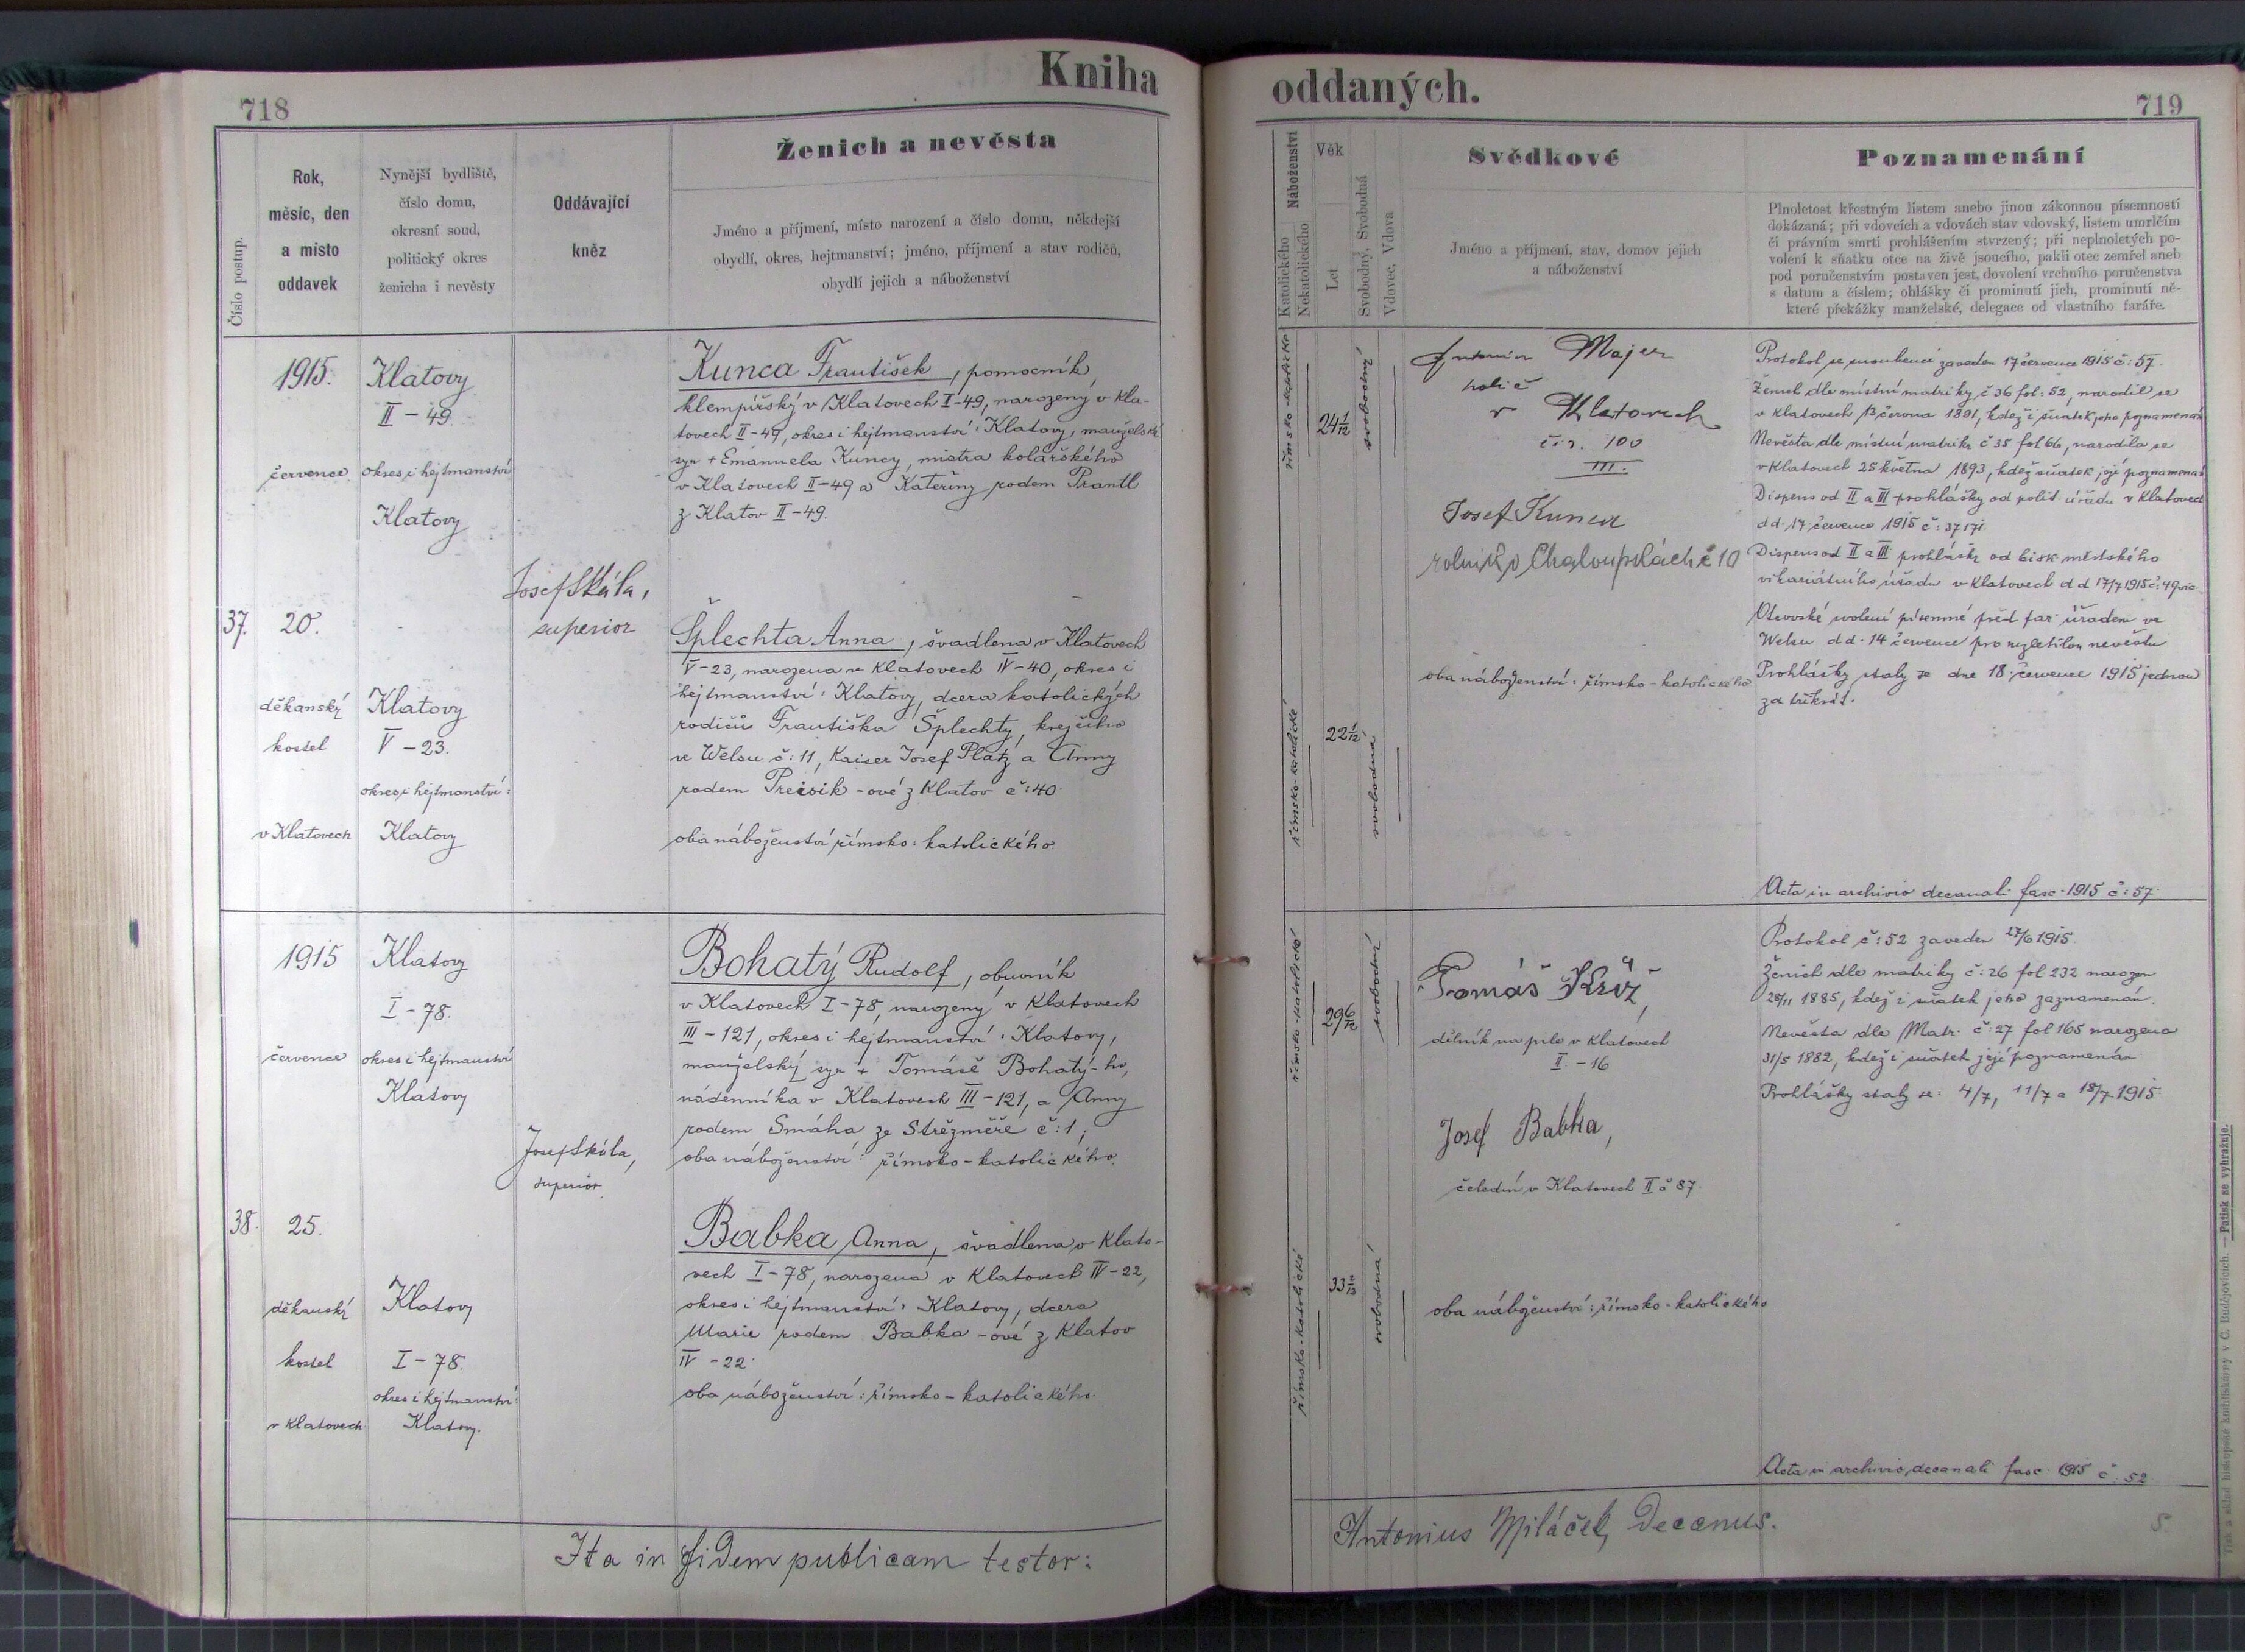 Kniha
oddaných.
718
719
Číslo postup.
Rok,
měsíc, den
a místo
oddavek
Nynější bydliště,
číslo domu,
okresní soud,
politický okres
ženicha i nevěsty
Oddávající
kněz
Ženich a nevěsta
Jméno a příjmení, místo narození a číslo domu, někdejší
obydlí, okres, hejtmanství; jméno, příjmení a stav rodičů,
obydlí jejich a náboženství
Náboženství
Katolického
Nekatolického
Věk
Let
Svobodný, Svobodná
Vdovec, Vdova
Svědkové
Jméno a příjmení, stav, domov jejich
a náboženství
Poznamenání
Plnoletost křestným listem anebo jinou zákonnou písemností
dokázaná; při vdovcích a vdovách stav vdovský, listem umrlčím
či právním smrti prohlášením stvrzený; při neplnoletých po-
volení k sňatku otce na živě jsoucího, pakli otec zemřel aneb
pod poručenstvím postaven jest, dovolení vrchního poručenstva
s datum a číslem; ohlášky či prominutí jich, prominutí ně-
které překážky manželské, delegace od vlastního faráře.
37.
1915.
července
20.
děkanský
kostel
v Klatovech
Klatovy
II – 49.
okres i hejtmanství
Klatovy
Klatovy
V – 23.
okres i hejtmanství:
Klatovy
Josef Skála,
superior
Kunca František, pomocník
klempířský v Klatovech I-49, narozený v Kla-
tovech II-49, okres i hejtmanství: Klatovy, manželský
syn + Emanuela Kuncy, mistra kolářského
v Klatovech II-49 a Kateřiny rodem Prantl
z Klatov II-49.
Šplechta Anna, švadlena v Klatovech
V-23, narozena v Klatovech IV-40, okres i
hejtmanství: Klatovy, dcera katolických
rodičů Františka Šplechty, krejčího
ve Welsu č: 11, Kaiser Josef Platz a Anny
rodem Preisik-ové z Klatov č: 40.
oba náboženství římsko-katolického.
římsko-katolické
24 1/12
svobodný
římsko-katolické
22 1/12
svobodná
Antonín Majer
holič
v Klatovech
č. 100
III.
Josef Kunca
rolník v Chaloupkách č 10
oba náboženství: římsko-katolického
Protokol se snoubenci zaveden 17 července 1915 č: 57.
Ženich dle místní matriky č 36 fol: 52, narodil se
v Klatovech 13 června 1891, kdež i sňatek jeho poznamenán
Nevěsta dle místní matriky č 35 fol 66, narodila se
v Klatovech 25 května 1893, kdež sňatek její poznamenán
Dispens od II a III prohlášky od polit. úřadu v Klatovech
d d. 17 července 1915 č: 37171.
Dispens od II a III prohlášky od bisk městského
vikariátního úřadu v Klatovech d d 17/7 1915 č: 49 vic.
Otcovské svolení písemné před far. úřadem ve
Welsu d d. 14 července pro nezletilou nevěstu
Prohlášky staly se dne 18 července 1915 jednou
za třikrát.
Acta in archivio decanali fasc. 1915 č: 57.
38.
1915
července
25.
děkanský
kostel
v Klatovech
Klatovy
I – 78.
okres i hejtmanství
Klatovy
Klatovy
I – 78.
okres i hejtmanství:
Klatovy.
Josef Skála,
superior
Bohatý Rudolf, obuvník
v Klatovech I-78, narozený v Klatovech
III-121, okres i hejtmanství: Klatovy,
manželský syn + Tomáše Bohatý-ho,
nádenníka v Klatovech III-121, a Anny
rodem Smáha ze Střezměře č: 1;
oba náboženství: římsko-katolického.
Babka Anna, švadlena v Klato-
vech I-78, narozena v Klatovech IV-22,
okres i hejtmanství: Klatovy, dcera
Marie rodem Babka-ové z Klatov
IV-22.
oba náboženství: římsko-katolického.
římsko-katolické
29 6/12
svobodný
římsko-katolické
33
svobodná
Tomáš Kříž,
dělník na pile v Klatovech
II. - 16
Josef Babka,
čeledín v Klatovech II č 87.
oba náboženství: římsko-katolického
Protokol č: 52 zaveden 27/6 1915.
Ženich dle matriky č: 26 fol 232 narozen
28/11 1885, kdež i sňatek jeho zaznamenán.
Nevěsta dle Matr. č: 27 fol 165 narozena
31/5 1882, kdež i sňatek její poznamenán
Prohlášky staly se: 4/7, 11/7 a 18/7 1915.
Acta in archivio decanali fasc. 1915 č: 52
Ita in fidem publicam testor:
Antonius Miláček, Decanus.
Tisk a sklad biskupské knihtiskárny v Č. Budějovicích. — Patisk se vyhražuje.